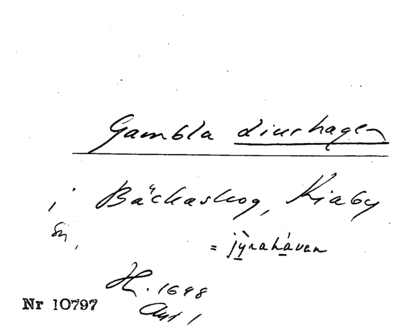 Gambla diurhagen
i Bäckaskog, Kiaby
Sn,
= jỳrahávan
H. 1698
Nr 10797